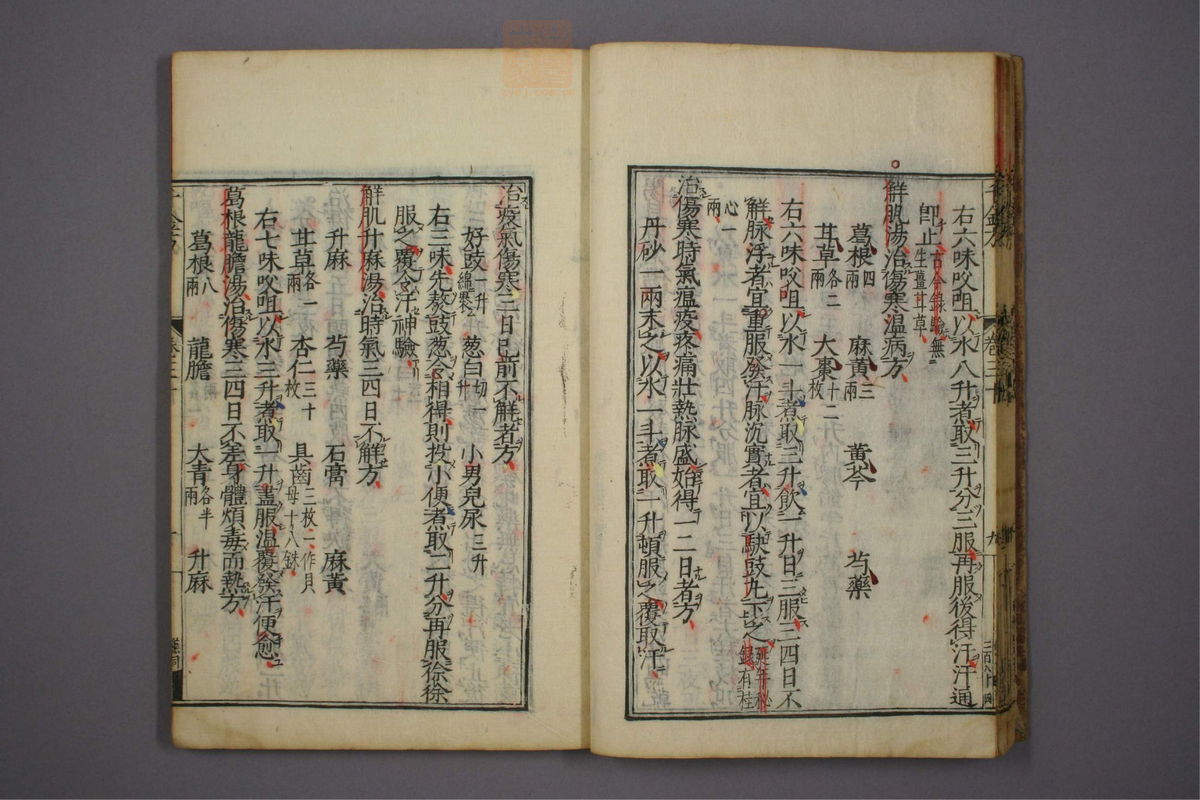 右六味㕮咀以水八升煮取三升分三服再服後得汗汗通
即止古今録驗無生薑甘草
解肌湯治傷寒溫病方
葛根四兩 麻黃三兩 黃芩 芍藥
甘草各二兩 大棗十二枚
右六味㕮咀以水一斗煮取三升飲一升日三服三四日不
解脉浮者宜重服發汗脉沉實者宜以駃豉丸下之延年秘録有桂
心一兩
治傷寒時氣瘟疫疼痛壯熱脉盛始得一二日者方
丹砂一兩末之以水一斗煮取一升頓服之覆取汗
治疫氣傷寒三日已前不解者方
好豉一升綿裹 葱白切一升 小男兒尿三升
右三味先熬豉葱令相得則投小便煮取二升分再服徐徐
服之覆令汗神驗
解肌升麻湯治時氣三四日不解方
升麻 芍藥 石膏 麻黃
甘草各一兩 杏仁三十枚 貝齒三枚一作貝母十八銖
右七味㕮咀以水三升煮取一升盡服溫覆發汗便愈
葛根龍膽湯治傷寒三四日不差身體煩毒而熱方
葛根八兩 龍膽 大青各半兩 升麻